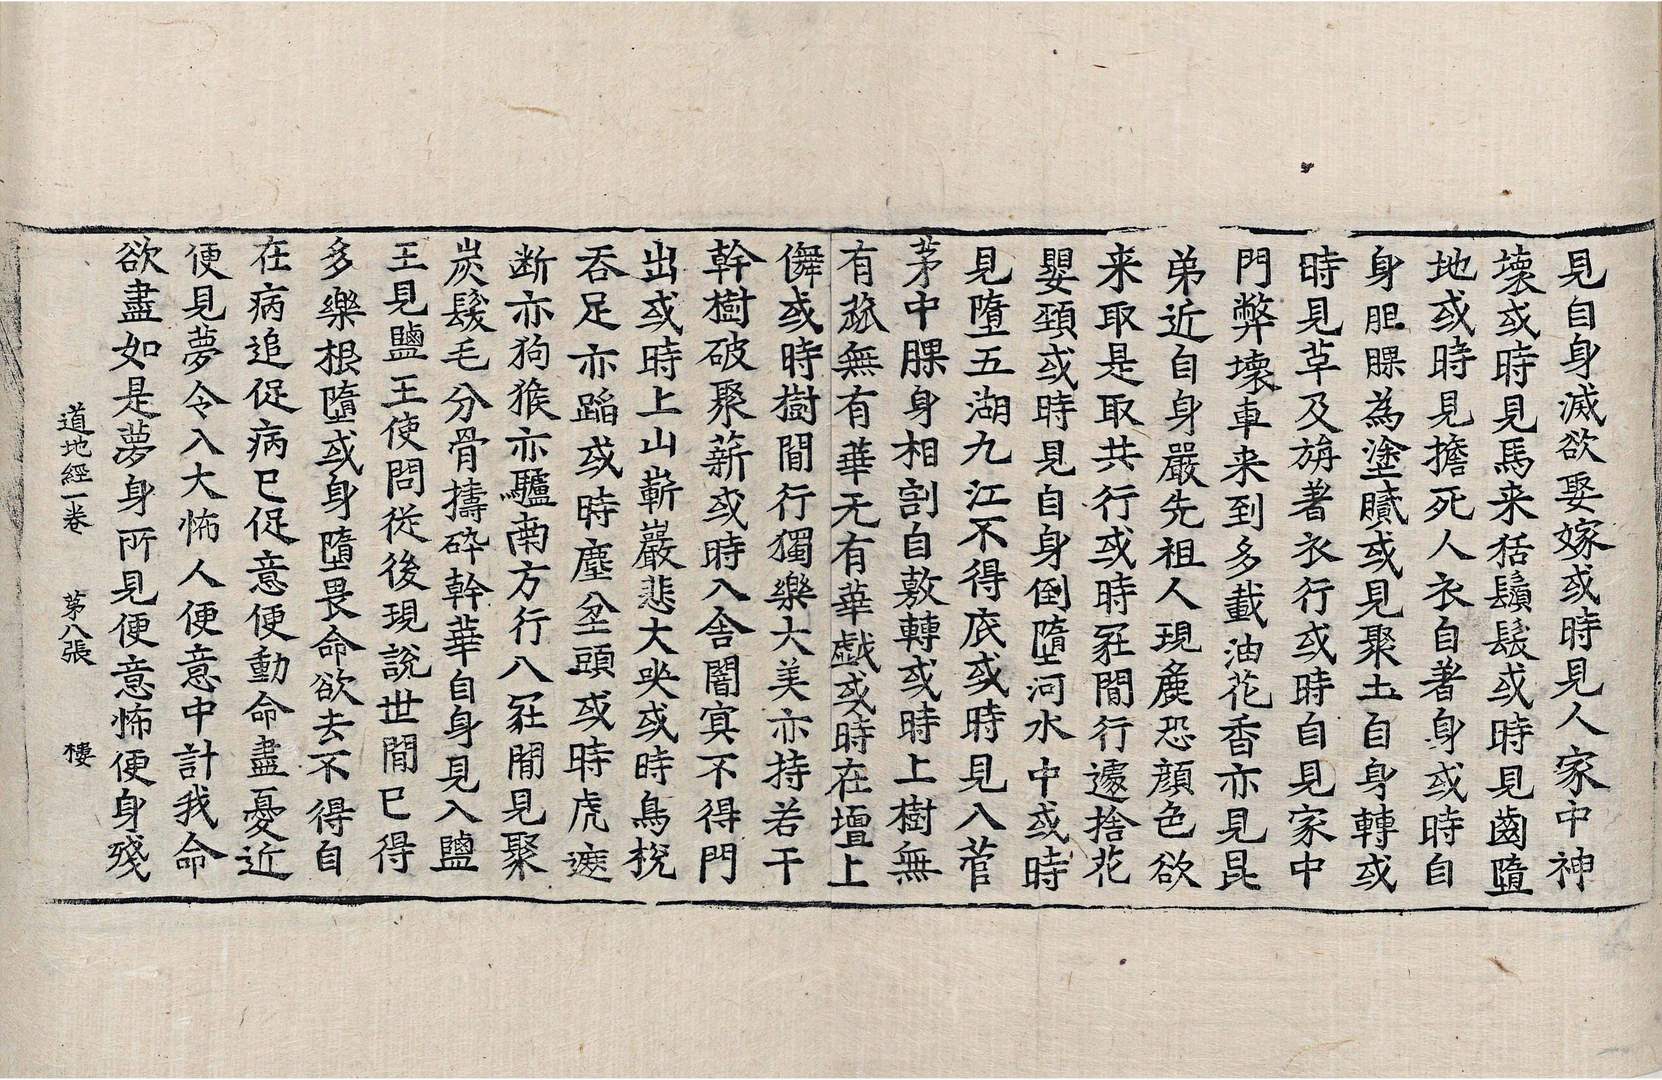 見自身滅欲娶嫁或時見人家中神
壞或時見馬来狧鬚髮或時見齒墮
地或時見擔死人衣自著身或時自
身胆躶為塗膩或見聚土自身轉或
時見草及旃著衣行或時自見家中
門弊壞車来到多載油花香亦見昆
弟近自身嚴先祖人現麁恐顔色欲
来取是取共行或時冢間行遽捨花
嬰頸或時見自身倒墮河水中或時
見墮五湖九江不得底或時見入菅
茅中躶身相割自敷轉或時上樹無
有蓏無有華无有華戲或時在壇上
儛或時樹間行獨樂大美亦持若干
幹樹破聚薪或時入舍闇冥不得門
出或時上山嶄巖悲大哭或時鳥梲
吞足亦蹈或時塵坌頭或時虎遮
断亦狗猴亦驢南方行入冢間見聚
炭髮毛分骨擣碎幹華自身見入鹽
王見鹽王使問從後現說世間已得
多樂根墮或身墮畏命欲去不得自
在病追促病已促意便動命盡憂近
便見夢令入大怖人便意中計我命
欲盡如是夢身所見便意怖便身殘
道地經一卷 第八張 樓